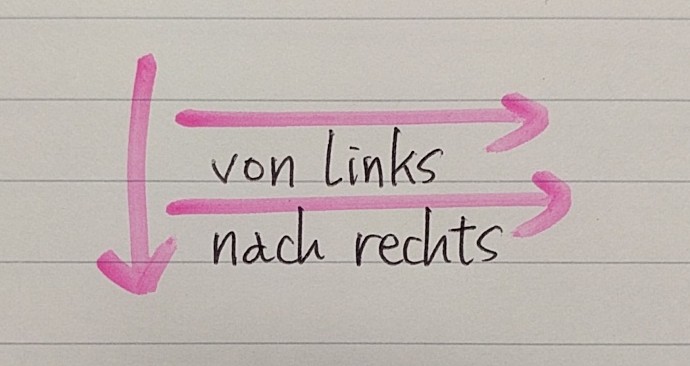 von links
nach rechts